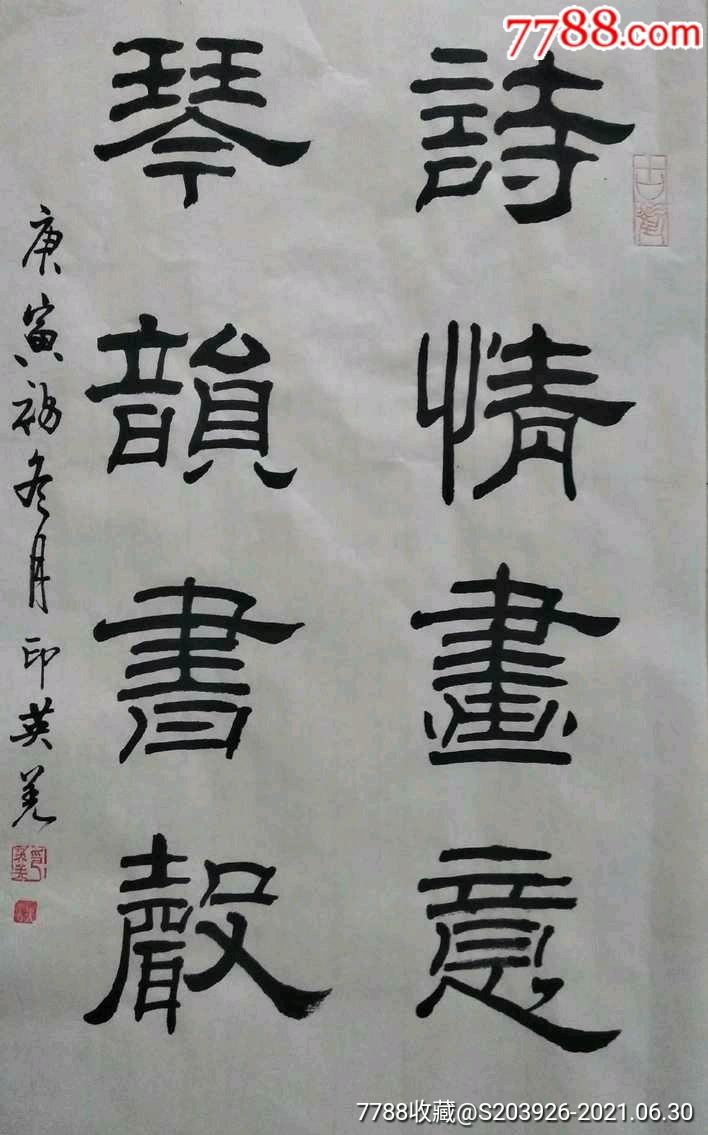 7788.com
詩情畫意
琴韻書聲
庚寅初冬月印英
7788收藏@S203926-2021.06.30